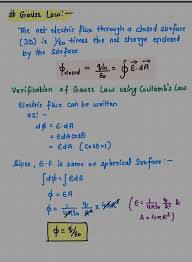 # Gauss Law:-
The net electric flux through a closed surface
(3D) is 1/ε₀ times the net charge enclosed
by the surface
ϕclosed = qin/ε₀ = ∮ E⃗·dA⃗
Verification of Gauss Law using Coulomb's Law
Electric flux can be written
as :-
dϕ = E·dA
= EdA cosθ
= EdA (cos0=1)
Since, E.F is same on spherical surface:-
∫dϕ = ∫EdA
ϕ = EA
ϕ = 1/4πε₀ q/R² × 4πR² (E = 1/4πε₀ q/R² &
A = 4πR²)
ϕ = q/ε₀